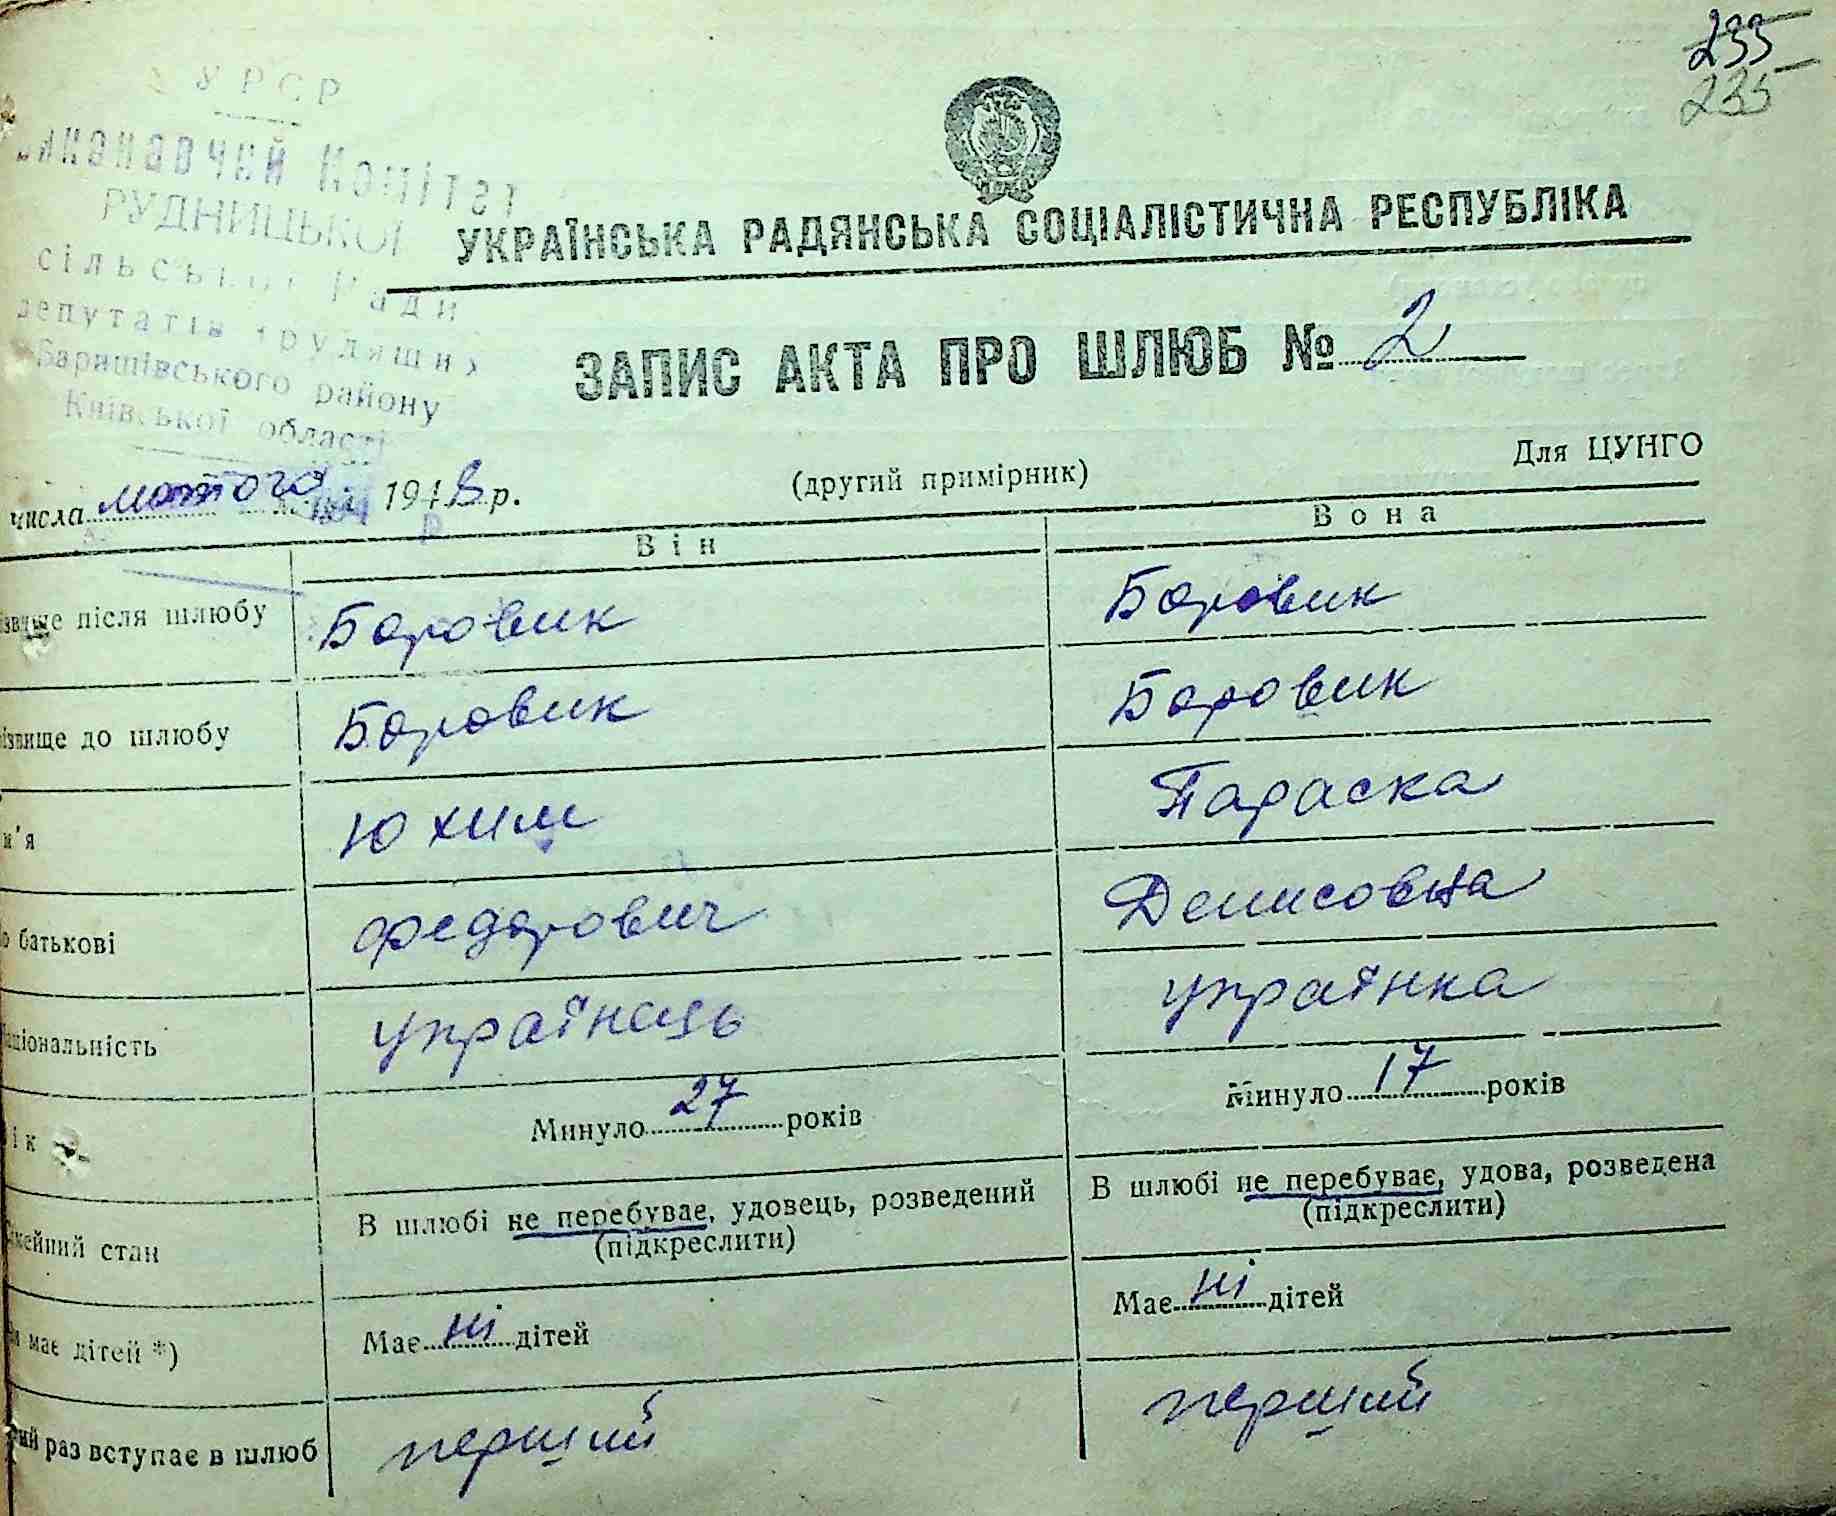 235
235
УРСР
виконавчий Комітет
РУДНИЦЬКОЇ
сільської Ради
депутатів трудящих
Баришівського району
Київської області
УКРАЇНСЬКА РАДЯНСЬКА СОЦІАЛІСТИЧНА РЕСПУБЛІКА
ЗАПИС АКТА ПРО ШЛЮБ № 2
Для ЦУНГО
(другий примірник)
числа лютого 194 р.
Він Вона
ізвище після шлюбу Боровик Боровик
ізвище до шлюбу Боровик Боровик
м'я Юхим Параска
о батькові Федорович Денисовна
аціональність українець українка
ік Минуло 27 років Минуло 17 років
імейний стан В шлюбі не перебуває, удовець, розведений В шлюбі не перебуває, удова, розведена
(підкреслити) (підкреслити)
и має дітей *) Має ні дітей Має ні дітей
рий раз вступає в шлюб перший перший